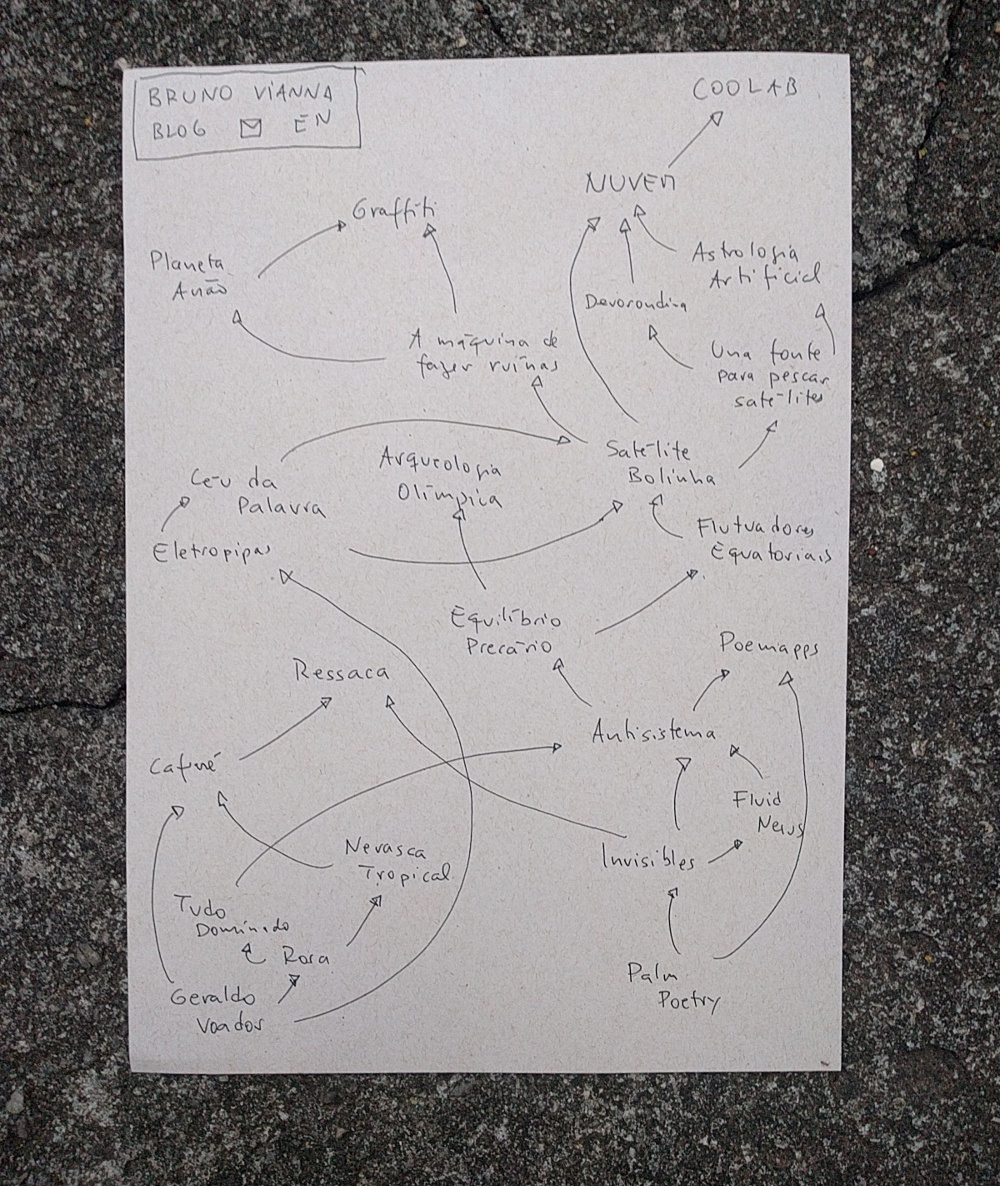 BRUNO VIANNA
BLOG EN
COOLAB
NUVEM
Graffiti
Planeta
Anão
Astrologia
Artificial
Devorondina
A máquina de
fazer ruínas
Una fonte
para pescar
satélites
Satélite
Bolinha
Arqueologia
Olímpica
Céu da
Palavra
Eletropipas
Flutuadores
Equatoriais
Equilíbrio
Precário
Poemapps
Ressaca
Antisistema
Cafuné
Fluid
News
Nevasca
Tropical
Invisibles
Tudo
Dominado
Rosa
Palm
Poetry
Geraldo
Voador